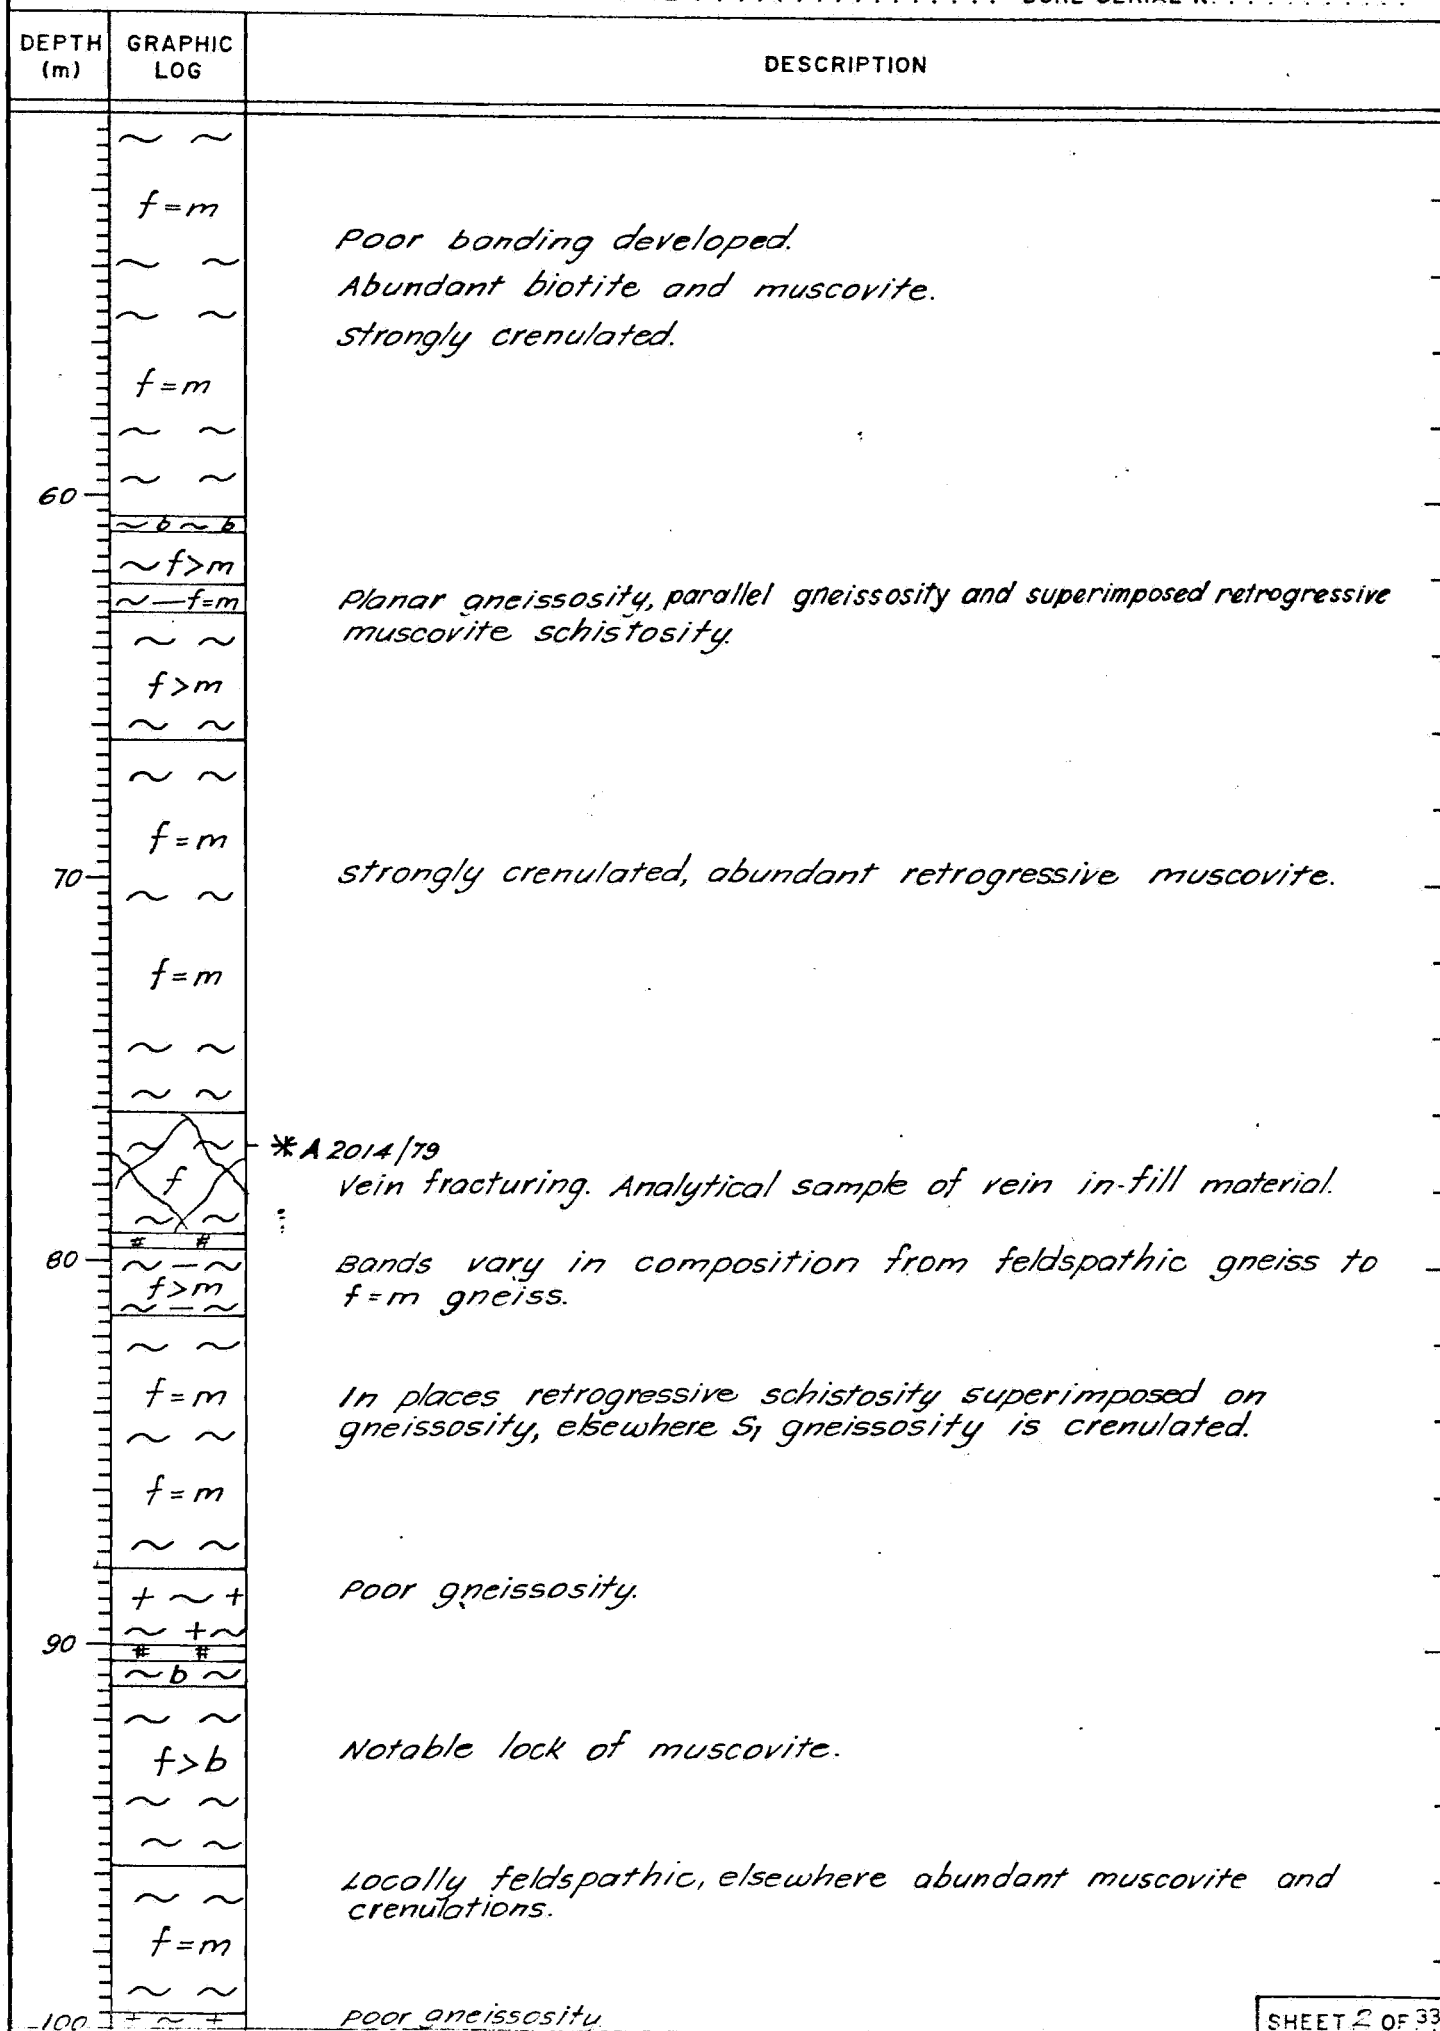 DEPTH (m) GRAPHIC LOG DESCRIPTION
f=m
Poor banding developed.
Abundant biotite and muscovite.
Strongly crenulated.
f=m
60
~ b ~ b
~ f>m
~ — f=m
Planar gneissosity, parallel gneissosity and superimposed retrogressive
muscovite schistosity.
f>m
f=m
70
Strongly crenulated, abundant retrogressive muscovite.
f=m
* A 2014/79
f
Vein fracturing. Analytical sample of vein in-fill material.
# #
80
Bands vary in composition from feldspathic gneiss to
f>m
f=m gneiss.
f=m
In places retrogressive schistosity superimposed on
gneissosity, elsewhere S1 gneissosity is crenulated.
f=m
+ ~ +
Poor gneissosity.
~ + ~
90
# #
~ b ~
f>b
Notable lack of muscovite.
Locally feldspathic, elsewhere abundant muscovite and
crenulations.
f=m
100
+ ~ +
Poor gneissosity
SHEET 2 OF 33